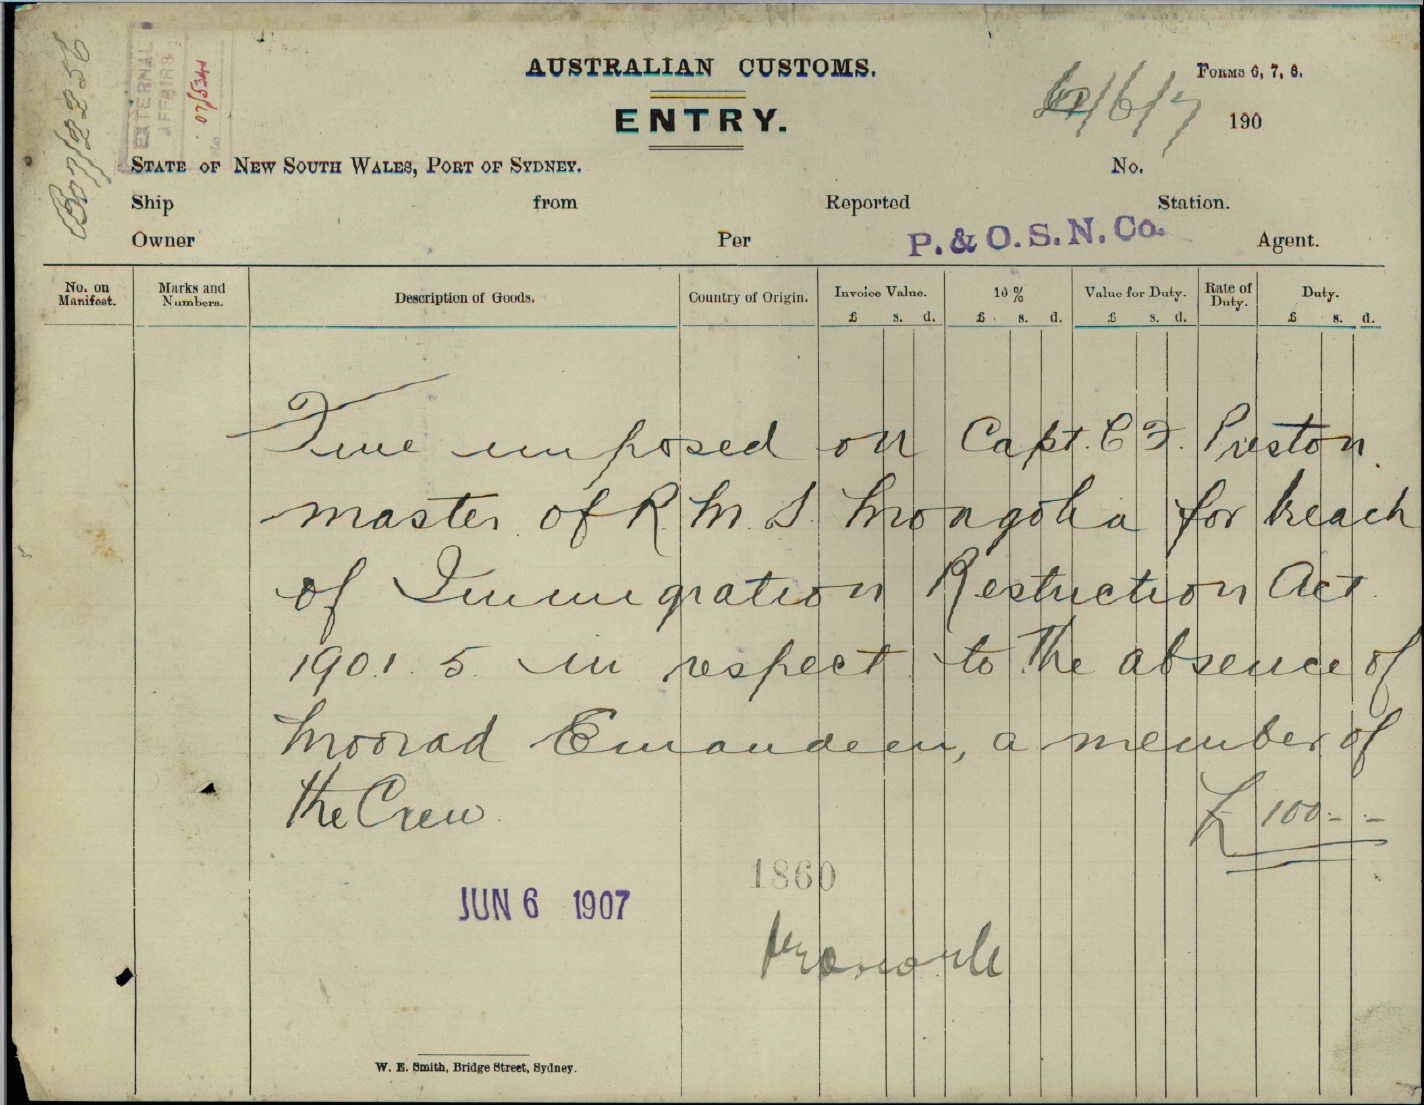 AUSTRALIAN CUSTOMS.
Forms 6, 7, 8.
ENTRY.
6/7 190
B07/2256
EXTERNAL
AFFAIRS
State of New South Wales, Port of Sydney. No.
Ship from Reported Station.
Owner Per P. & O. S. N. Co. Agent.
No. on Manifest. Marks and Numbers. Description of Goods. Country of Origin. Invoice Value. 10 % Value for Duty. Rate of Duty. Duty.
£ s. d. £ s. d. £ s. d. £ s. d.
Fine imposed on Capt. C F. Preston
master of R. M. S. Mongolia for breach
of Immigration Restriction Act
1901. 5. in respect to the absence of
Moorad Emandeen, a member of
the Crew. £100 - -
1860
JUN 6 1907
W. E. Smith, Bridge Street, Sydney.